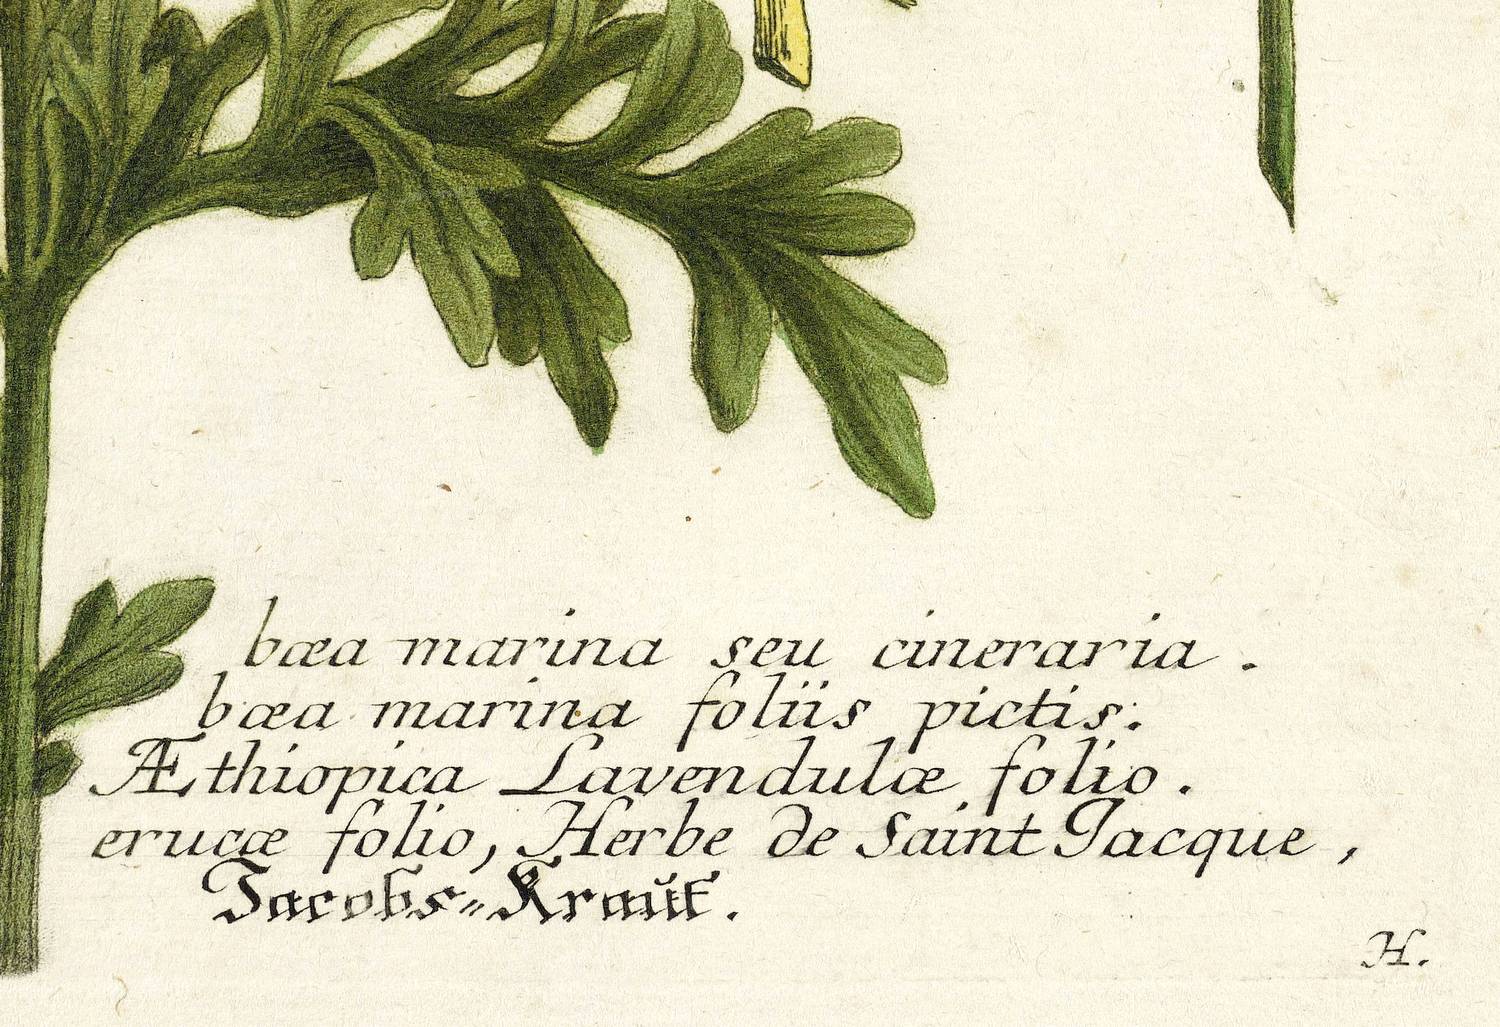 bœa marina seu cineraria.
bœa marina foliis pictis.
Æthiopica Lavendulæ folio.
erucæ folio, Herbe de Saint Jacque,
Jacobs-Kraut.
H.